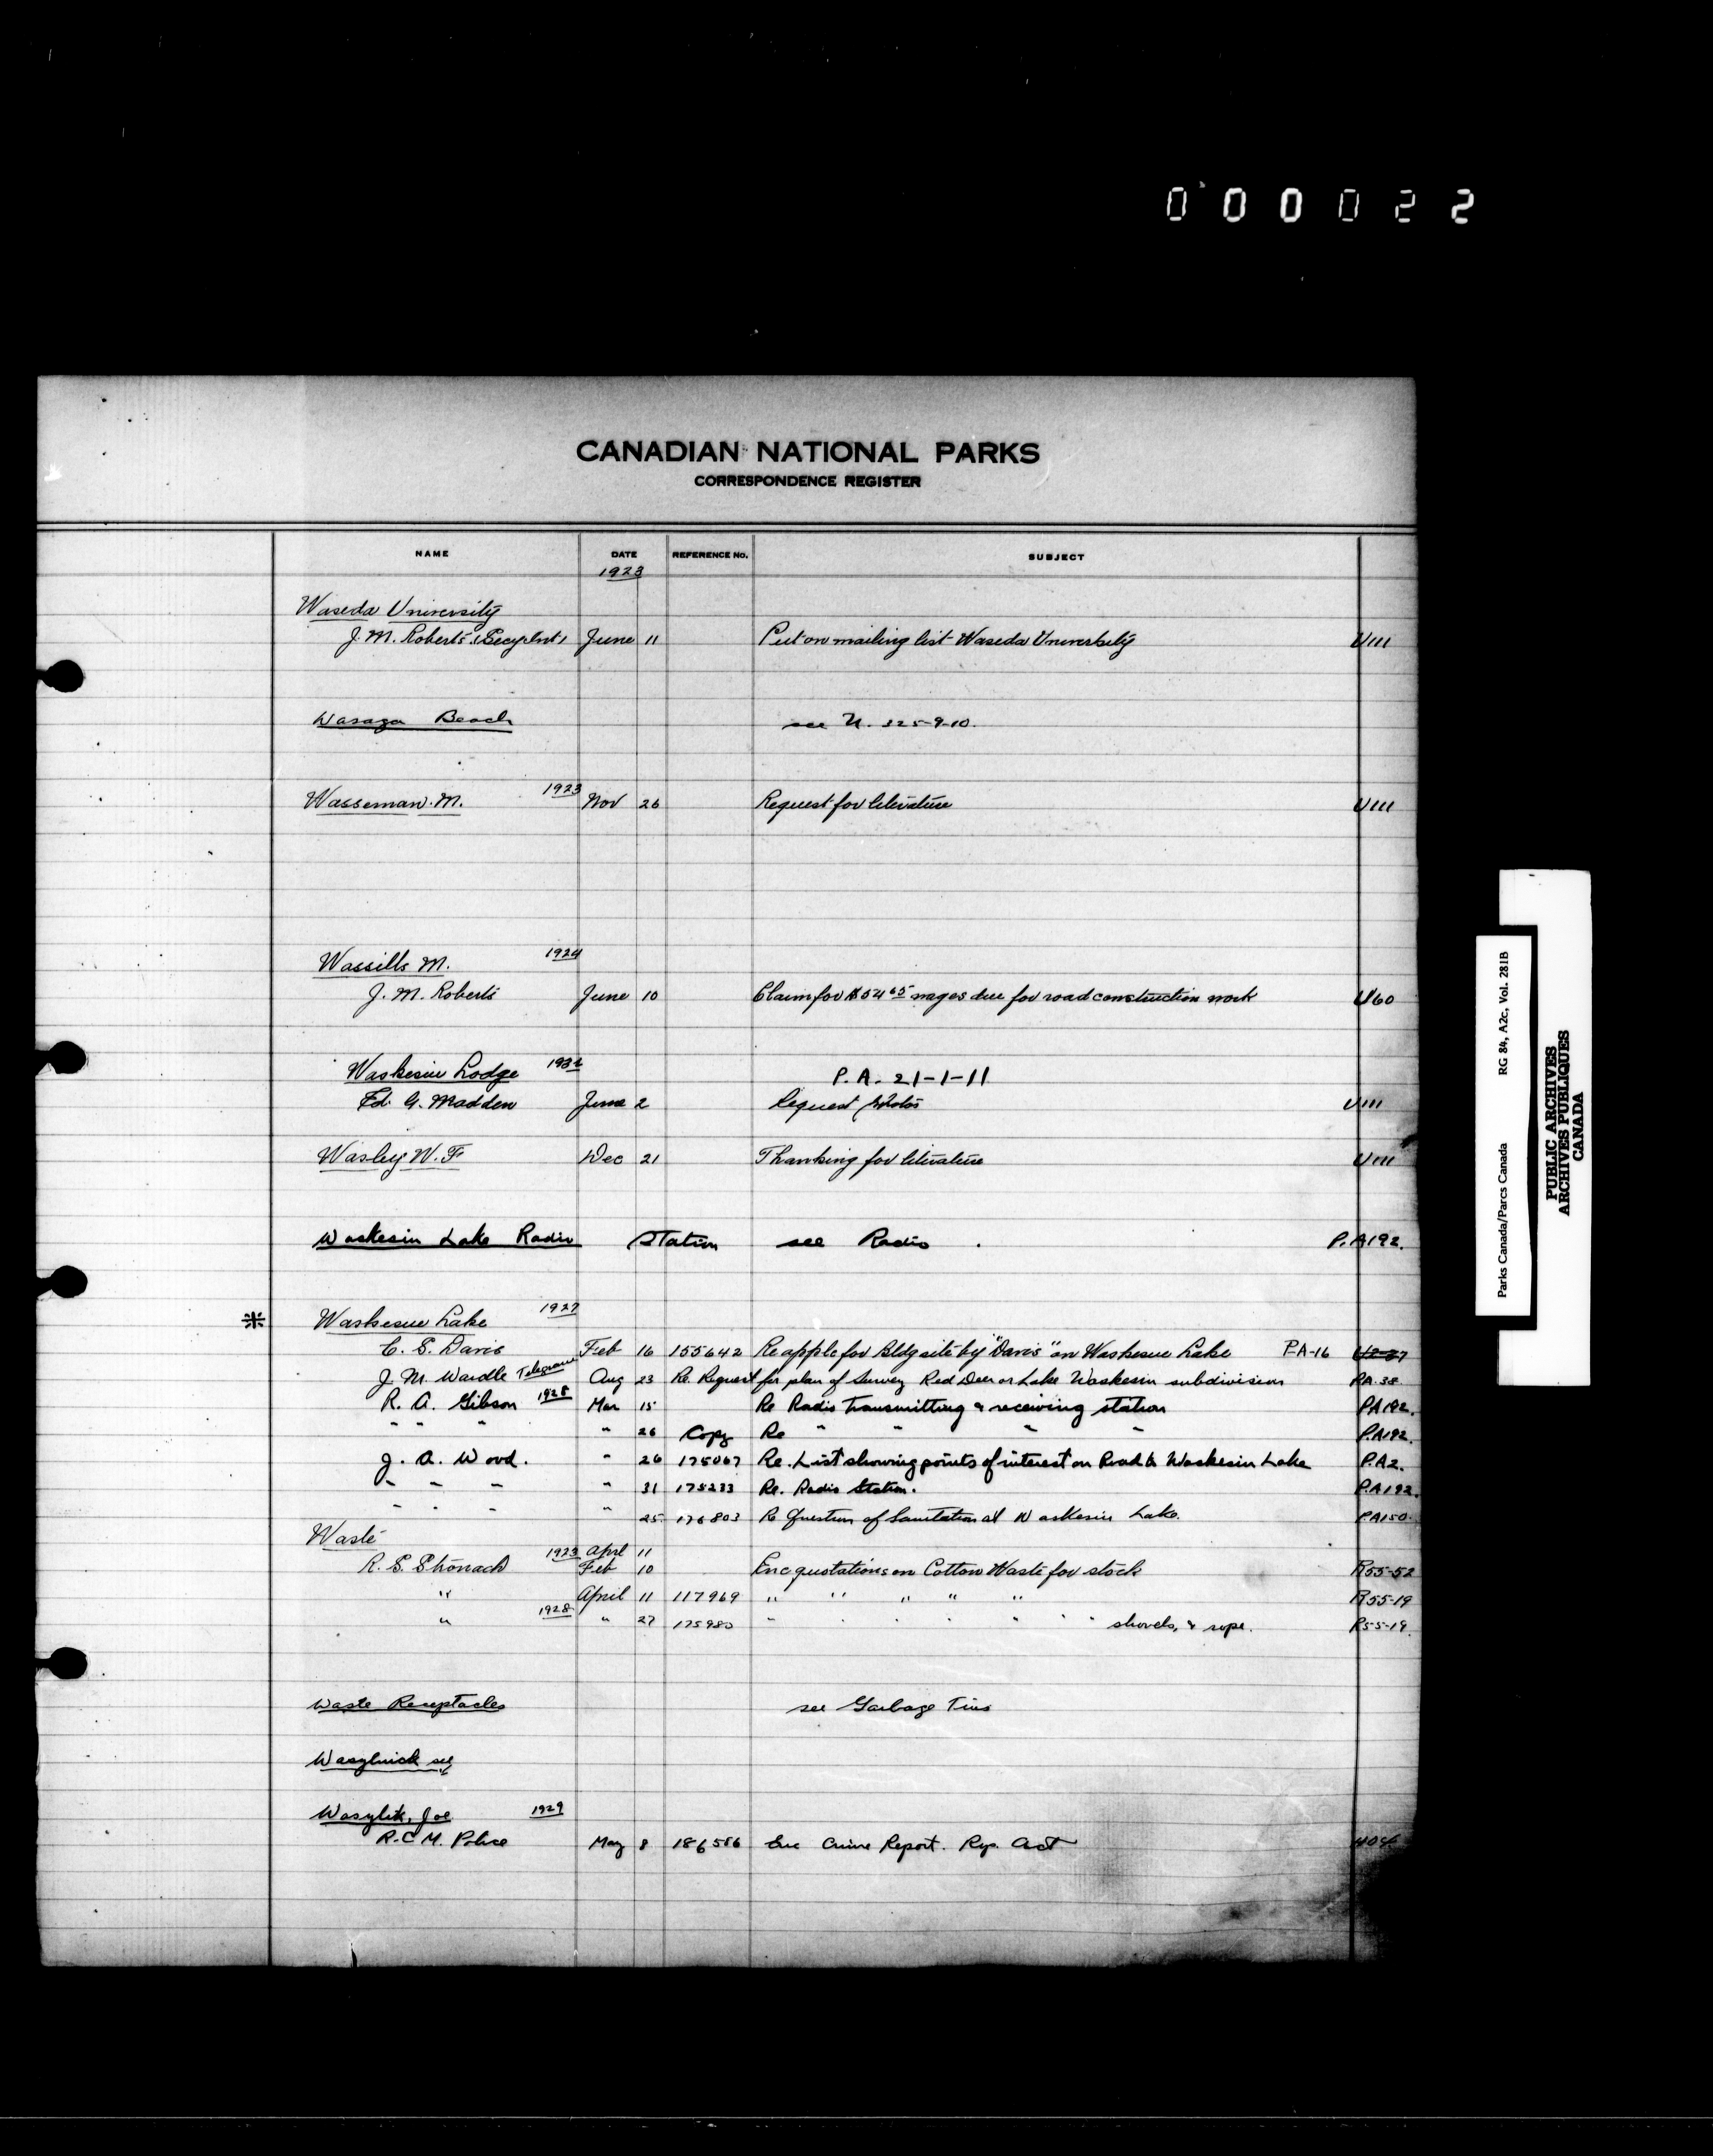 000022
CANADIAN NATIONAL PARKS
CORRESPONDENCE REGISTER
NAME DATE REFERENCE No. SUBJECT
1923
Waseda University
J. M. Roberts (Secy June 11 Put on mailing list Waseda University U111
Wasaga Beach see U. 325-9-10.
Wasseman. M. 1923 Nov 26 Request for literature U111
Wassills M. 1924
J. M. Roberts June 10 Claim for $54 65 wages due for road construction work U60
Waskesiu Lodge 1932 P. A. 21-1-11
Ed. G. Madden June 2 Request photos U111
Wasley W. F Dec 21 Thanking for literature U111
Waskesiu Lake Radio Station see Radio . P.A192.
※ Waskesue Lake 1927
C. S. Davis Feb 16 155642 Re applc for Bldg site by "Davis" on Waskesue Lake P-A-16 U2-27
J. M. Wardle Telegram Aug 23 Re. Request for plan of Survey Red Deer or Lake Waskesiu subdivision P.A. 38
R. A. Gibson 1928 Mar 15 Re Radio transmitting & receiving station PA192.
" " " " 26 Copy Re " " " " P.A192.
J. A. Wood. " 26 175067 Re. List showing points of interest on Road to Waskesiu Lake P.A2.
" " " " 31 175233 Re. Radio Station. P.A192.
" " " " 25 176803 Re Question of Sanitation at Waskesiu Lake. PA150
Waste
1923 April 11
R. S. Stronach Feb 10 Enc quotations on Cotton Waste for stock R55-52
" April 11 117969 " " " " " R55-19
" 1928 " 27 175980 " " " " " " " shovels, & rope. R55-19.
Waste Receptacles see Garbage Tins
Wasylnick see
Wasylik, Joe 1929
R.C.M. Police May 8 186586 Enc Crime Report. Rys. Act
Parks Canada/Parcs Canada RG 84, A2c, Vol. 281B
PUBLIC ARCHIVES
ARCHIVES PUBLIQUES
CANADA